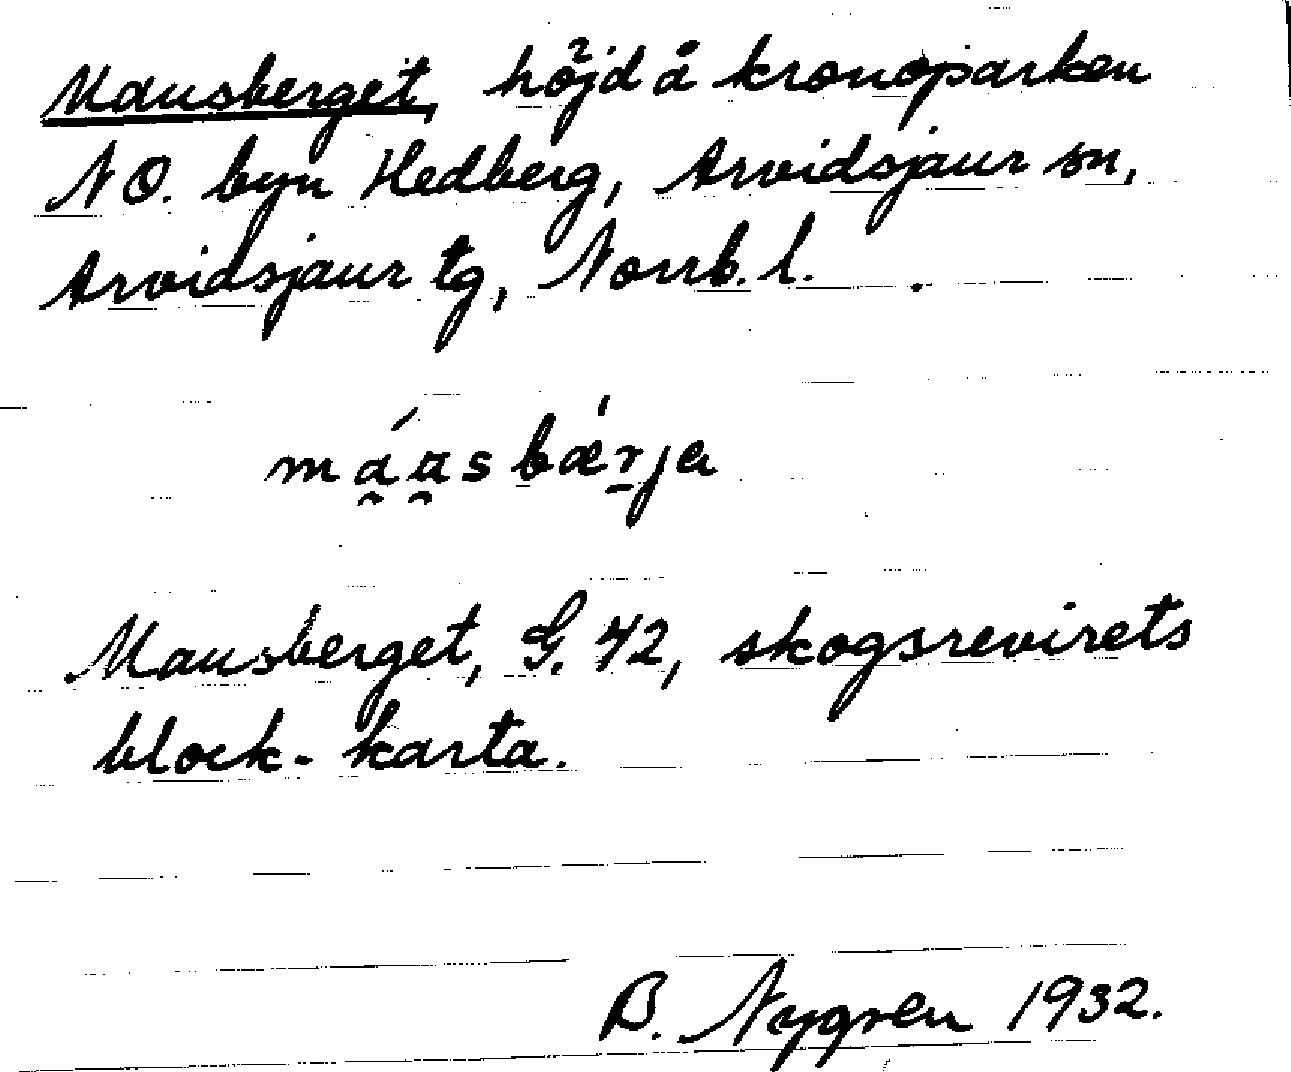 Mausberget, höjd å kronoparken
NO. byn Hedberg, Arvidsjaur sn,
Arvidsjaur tg, Norrb. l.
má̯a̯sbǽr̠ja
Mausberget, G. 42, skogsrevirets
block-karta.
B. Nygren 1932.